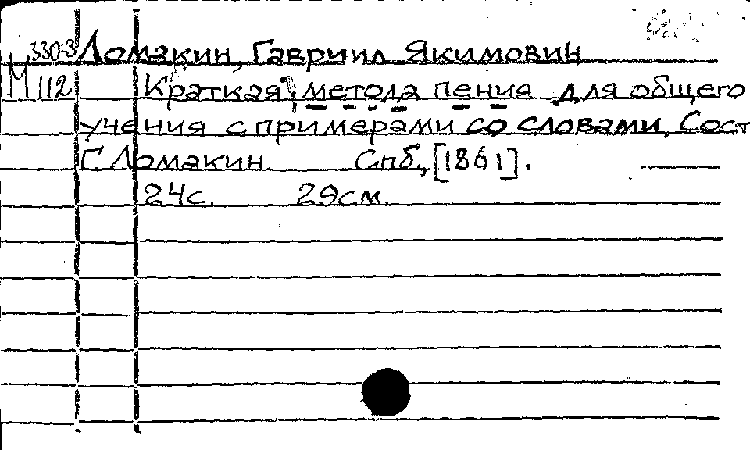 3303 Ломакин, Гавриил Якимович
М 112 Краткая метода пения для общего
учения с примерами со словами. Сост
Г. Ломакин Спб., [1861].
24с. 29см.